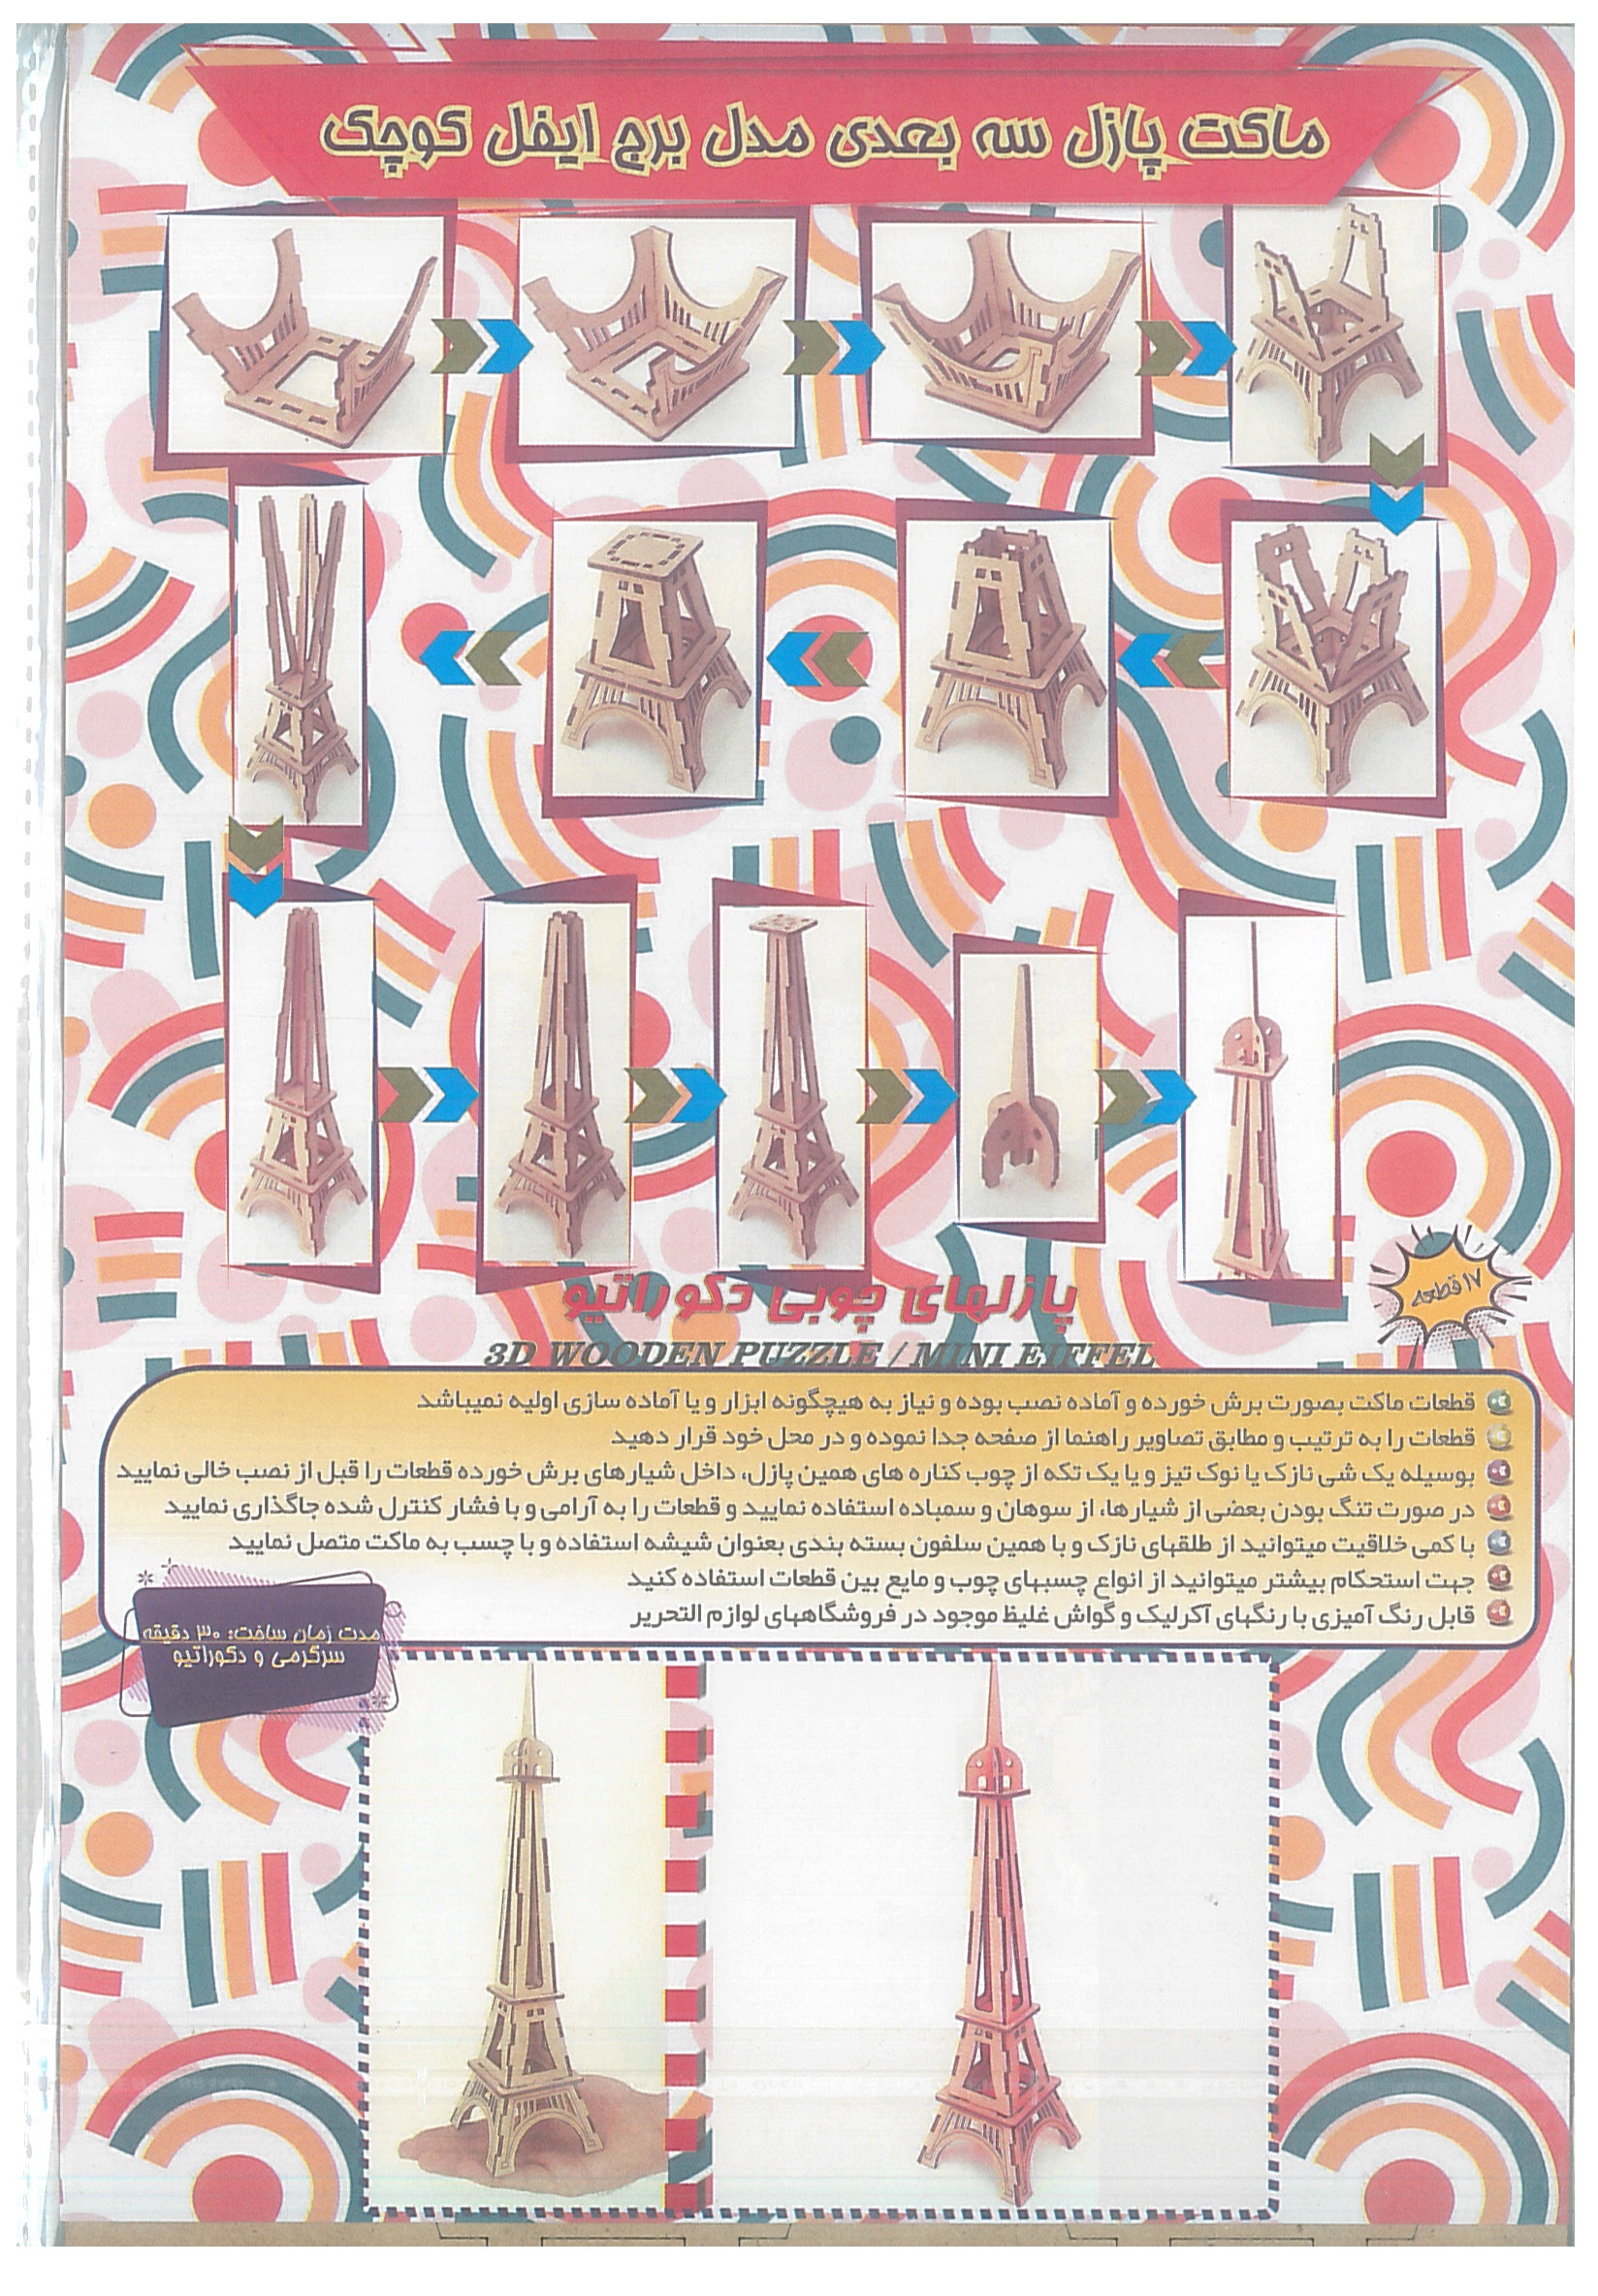 ماکت پازل سه بعدی مدل برج ایفل کوچک
پازلهای چوبی دکوراتیو
۱۷ قطعه
3D WOODEN PUZZLE / MINI EIFFEL
قطعات ماکت بصورت برش خورده و آماده نصب بوده و نیاز به هیچگونه ابزار و یا آماده سازی اولیه نمیباشد
قطعات را به ترتیب و مطابق تصاویر راهنما از صفحه جدا نموده و در محل خود قرار دهید
بوسیله یک شی نازک یا نوک تیز و یا یک تکه از چوب کناره های همین پازل، داخل شیارهای برش خورده قطعات را قبل از نصب خالی نمایید
در صورت تنگ بودن بعضی از شیارها، از سوهان و سمباده استفاده نمایید و قطعات را به آرامی و با فشار کنترل شده جاگذاری نمایید
با کمی خلاقیت میتوانید از طلقهای نازک و با همین سلفون بسته بندی بعنوان شیشه استفاده و با چسب به ماکت متصل نمایید
جهت استحکام بیشتر میتوانید از انواع چسبهای چوب و مایع بین قطعات استفاده کنید
قابل رنگ آمیزی با رنگهای آکرلیک و گواش غلیظ موجود در فروشگاههای لوازم التحریر
مدت زمان ساخت: ۳۰ دقیقه
سرگرمی و دکوراتیو